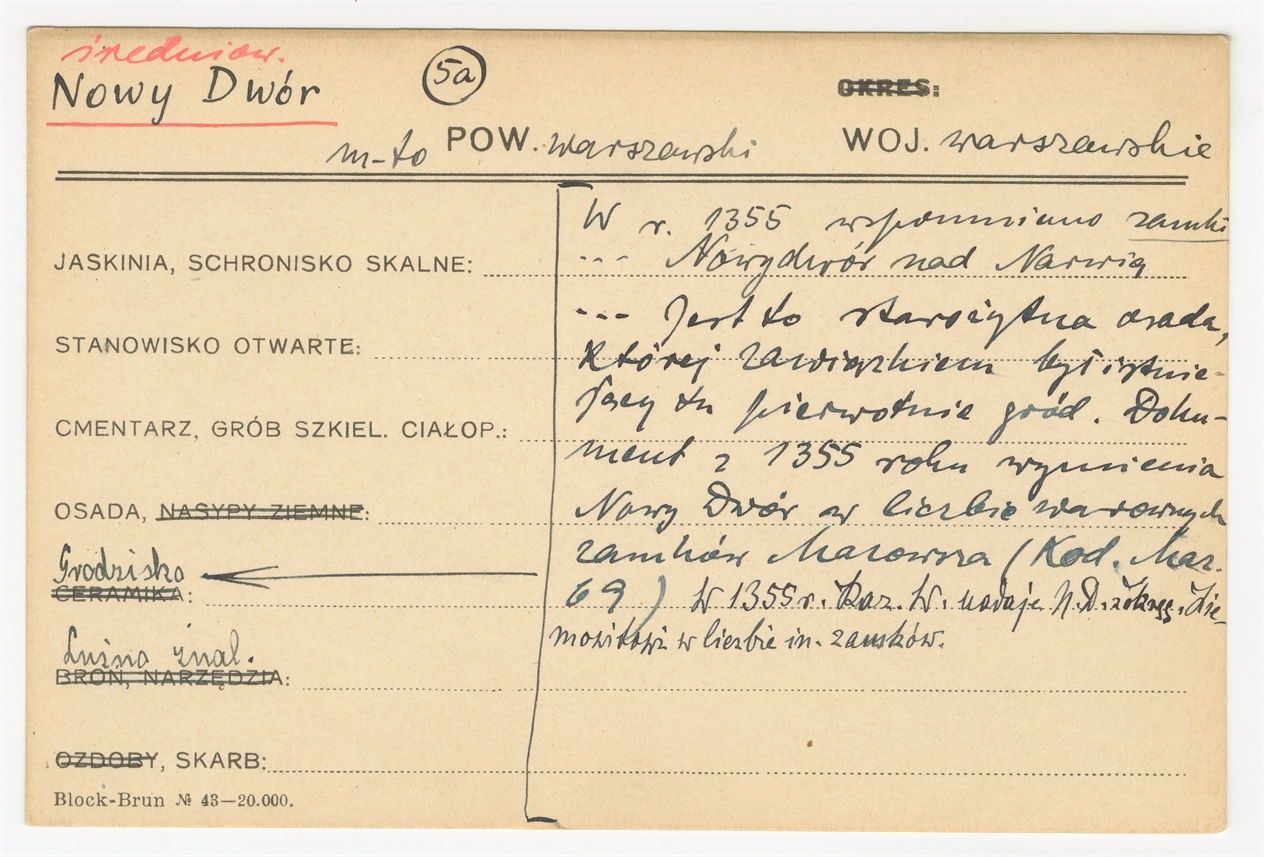 średniow.
Nowy Dwór
5a
OKRES:
m-to POW. warszawski WOJ. warszawskie
W r. 1355 wspomniano zamki
--- Nowydwór nad Narwią
JASKINIA, SCHRONISKO SKALNE:
--- Jest to starożytna osada,
STANOWISKO OTWARTE:
której zawiązkiem był istnie-
jący tu pierwotnie gród. Doku-
CMENTARZ, GRÓB SZKIEL. CIAŁOP.:
ment z 1355 roku wymienia
OSADA, NASYPY ZIEMNE:
Nowy Dwór w liczbie warownych
zamków Mazowsza (Kod. Maz.
Grodzisko
CERAMIKA:
69) W 1355 r. Kaz. W. nadaje N.D. z okręg. Zie-
mowitowi w liczbie in. zamków.
Luźno znal.
BROŃ, NARZĘDZIA:
OZDOBY, SKARB:
Block-Brun № 43—20.000.